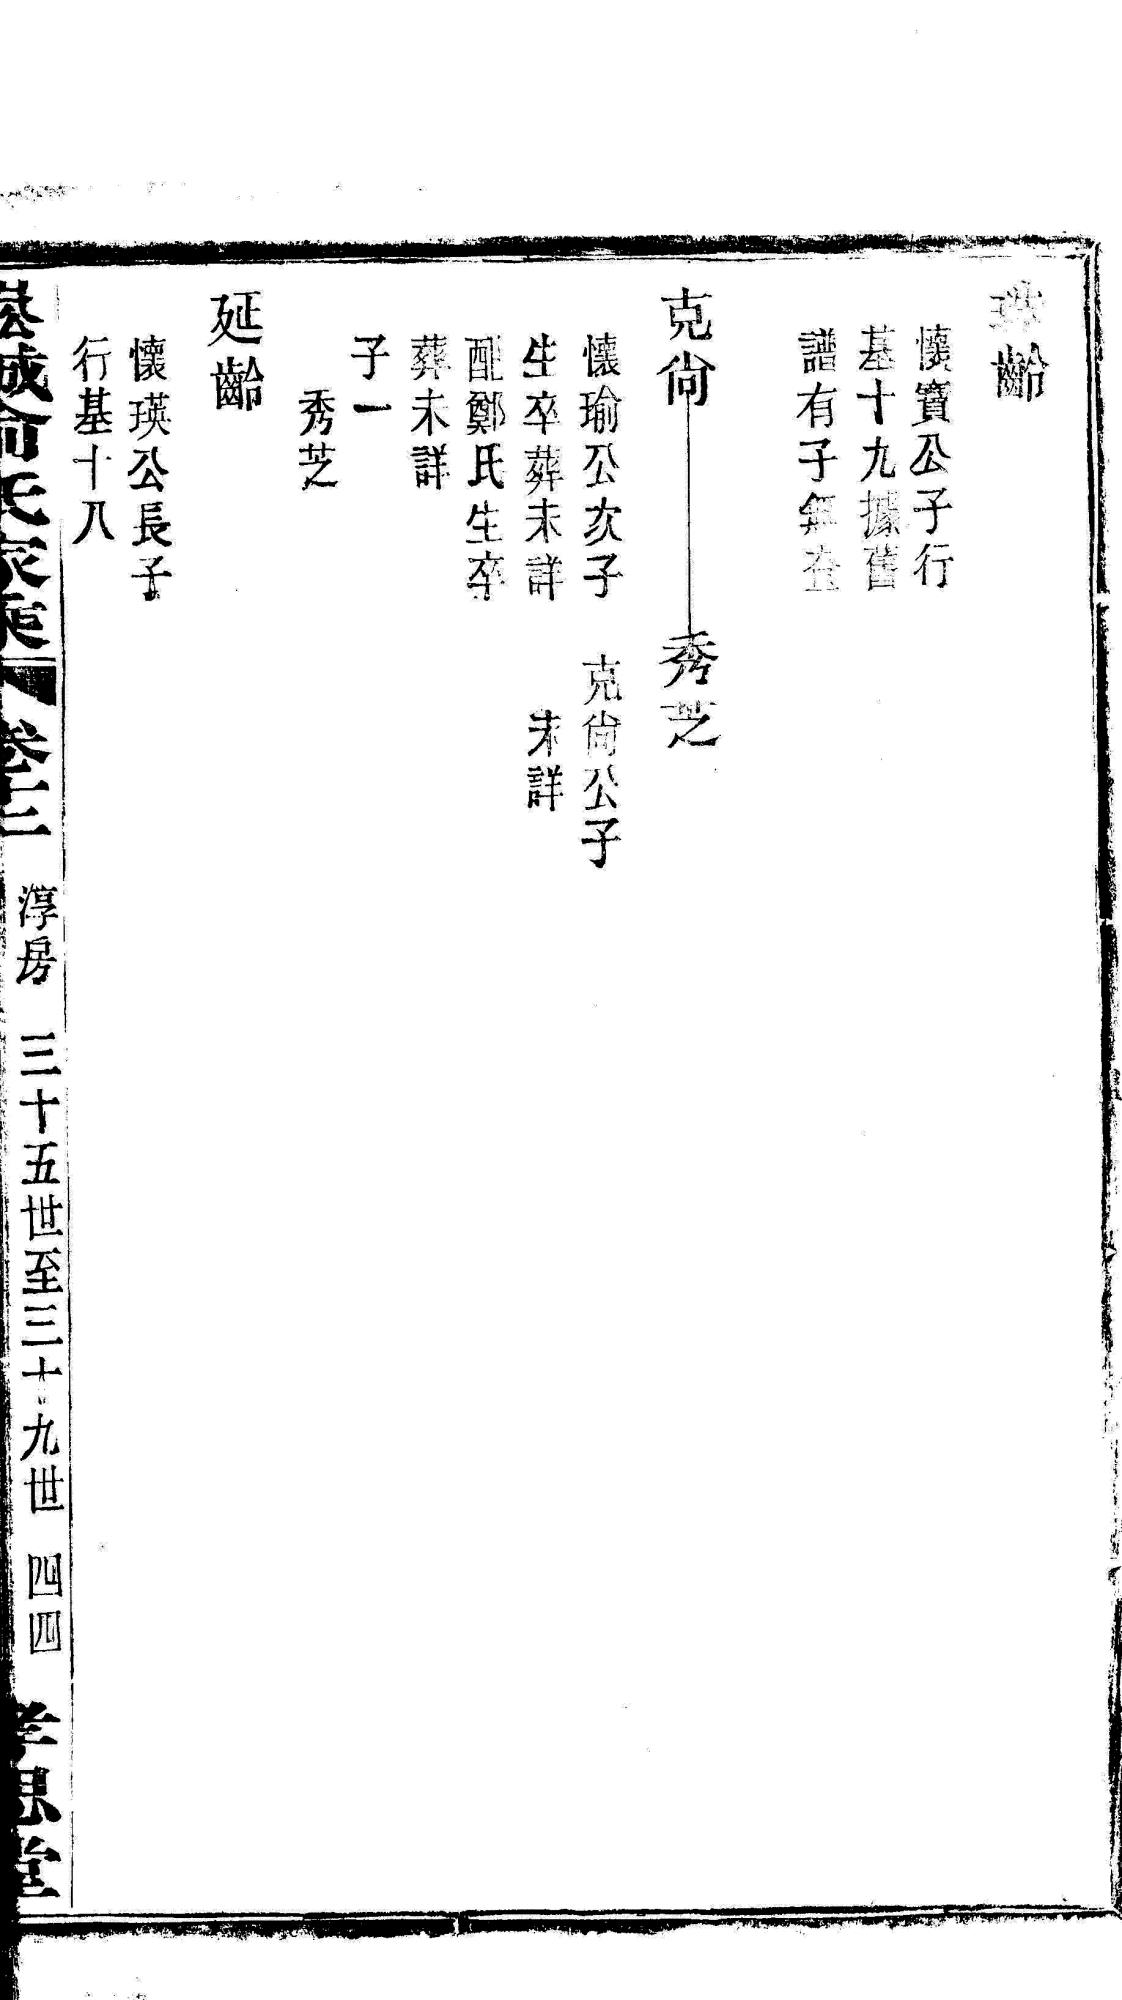 齡
懷寶公子行
基十九據舊
譜有子無查
克尙
秀芝
懷瑜公次子
生卒葬未詳
配鄭氏生卒
葬未詳
子一
秀芝
克尙公子
未詳
延齡
懷瑛公長子
行基十八
城俞氏家乘 卷十二 淳房 三十五世至三十九世 四四 孝思堂